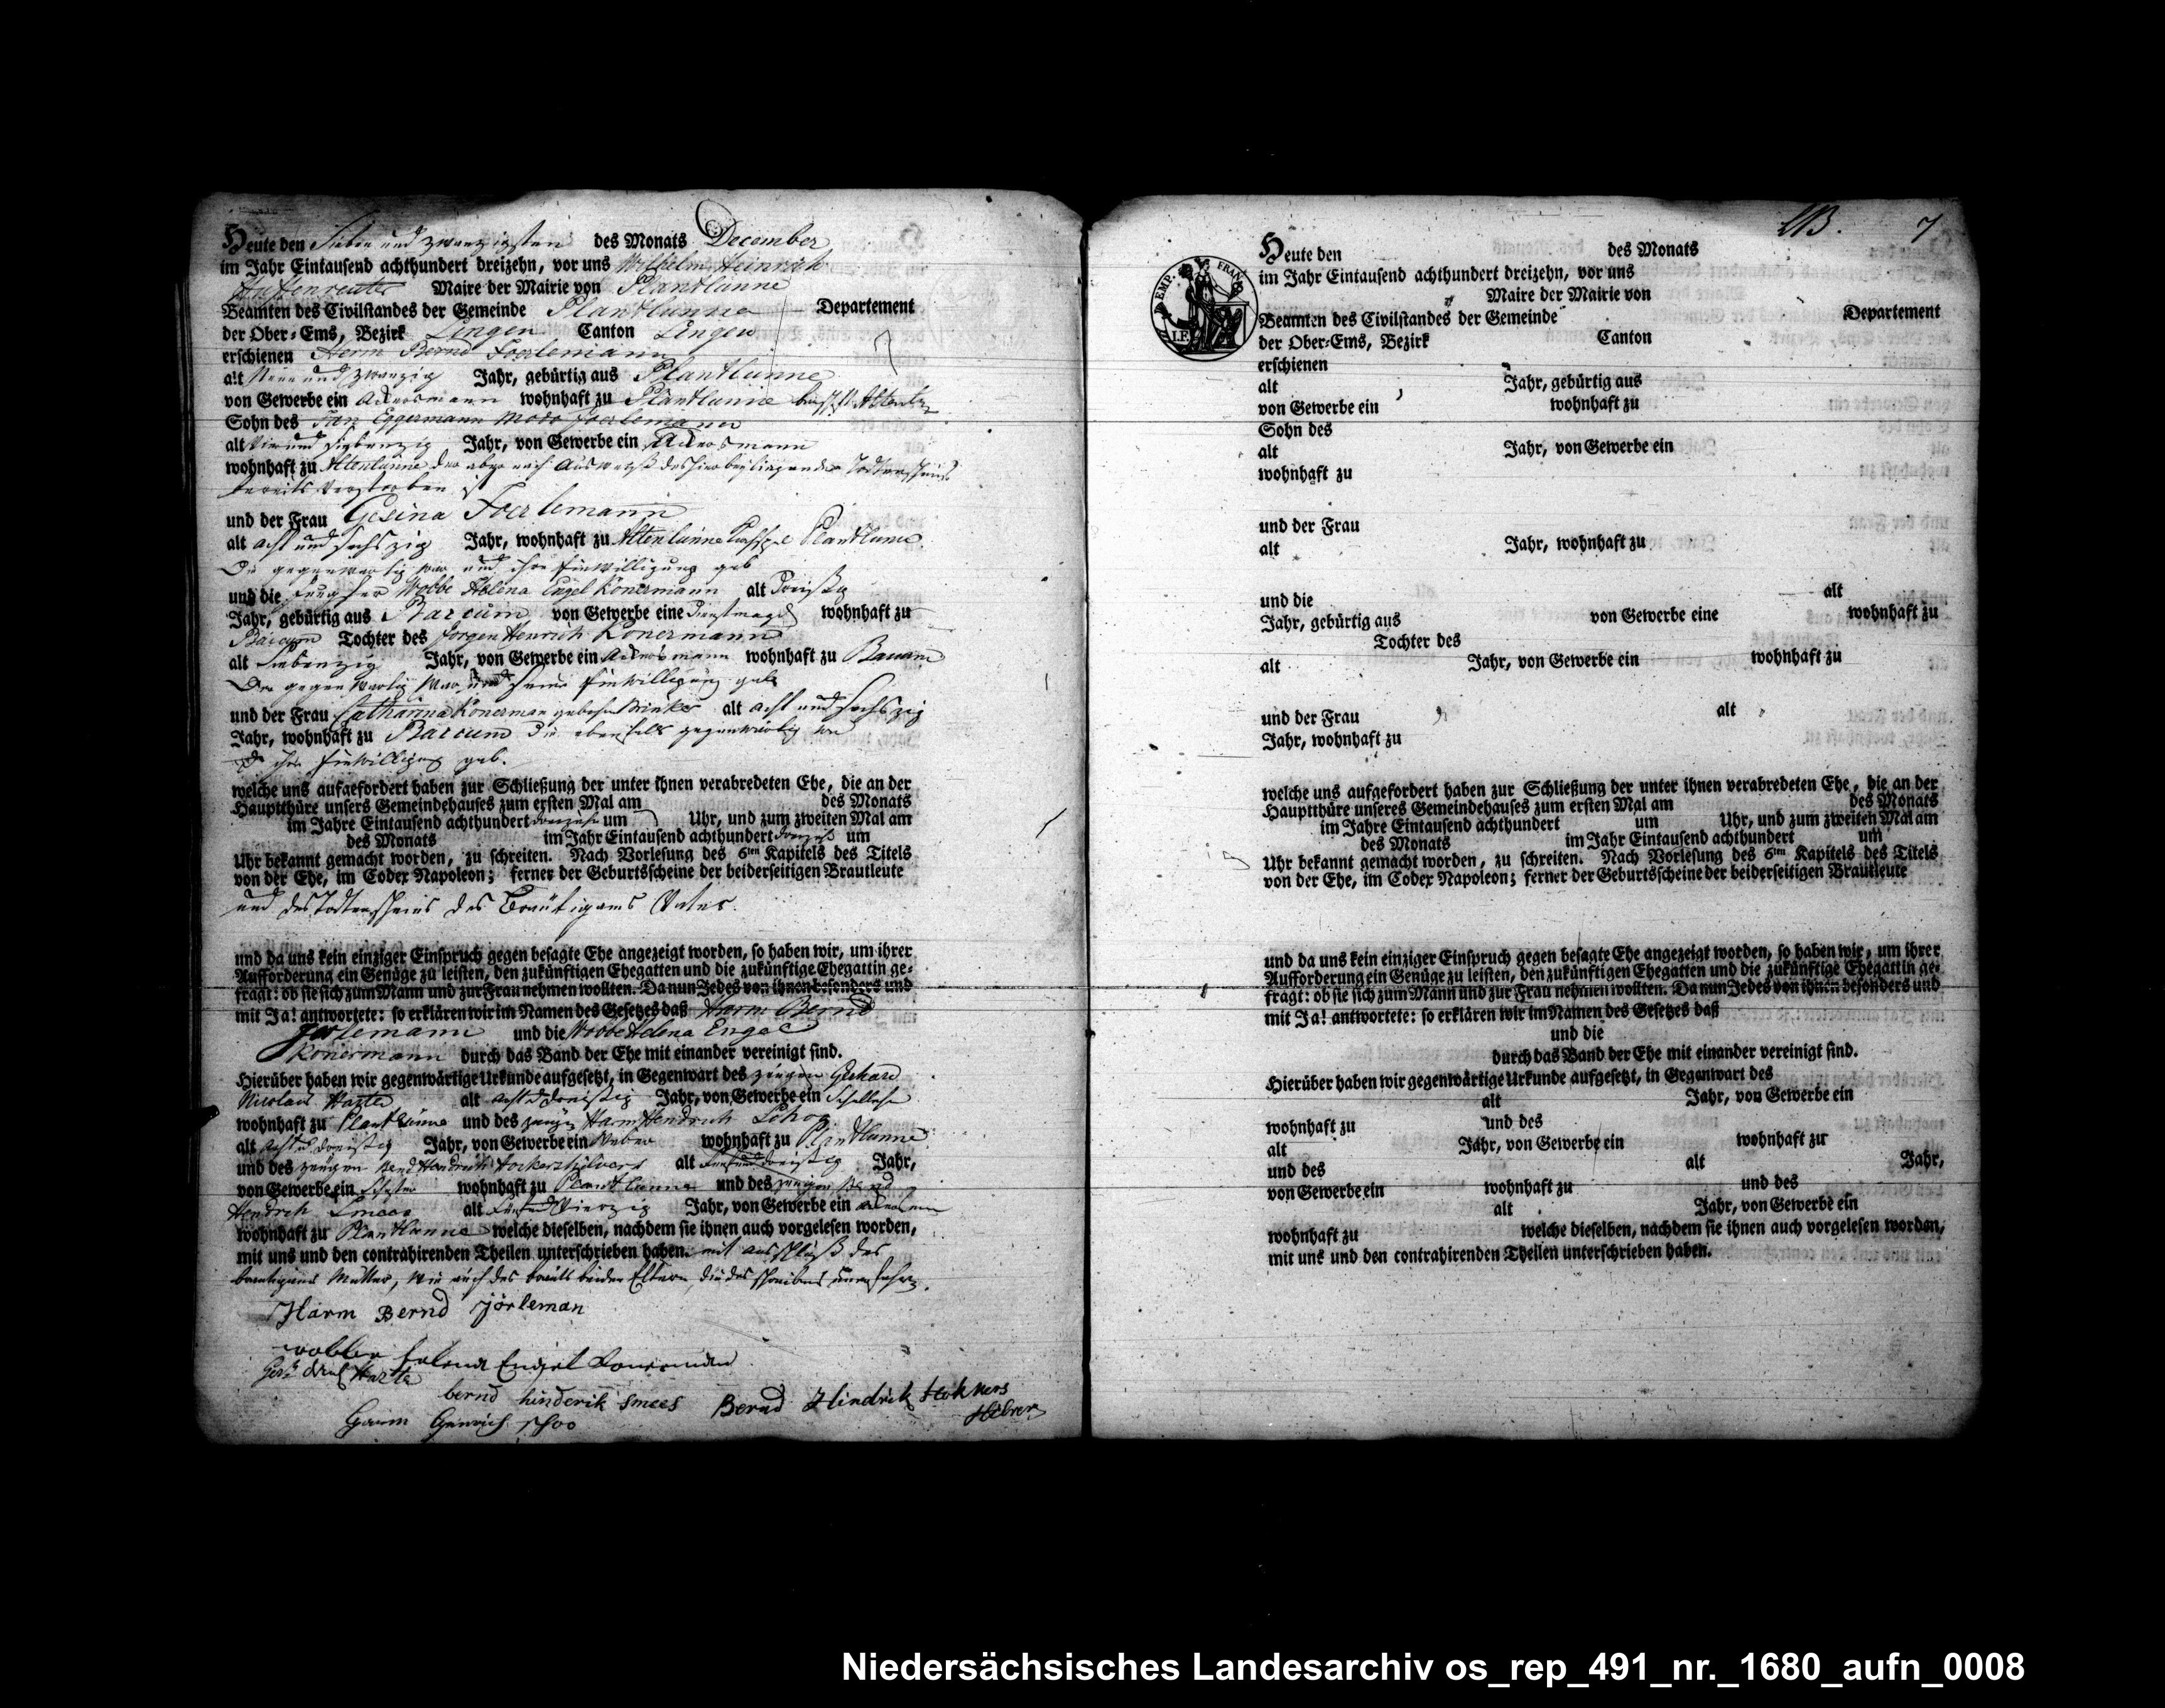 Heute den Sieben und zwanzigsten des Monats December
im Jahr Eintausend achthundert dreizehn, vor uns Wilhelm Heinrich
Maire der Mairie von Plantlunne
Beamten des Civilstandes der Gemeinde Plantlunne Departement
der Ober-Ems, Bezirk Lingen Canton Lingen
erschienen Herm Bernd Joerlemann
alt Neun und zwanzig Jahr, gebürtig aus Plantlunne
von Gewerbe ein Ackersmann wohnhaft zu Plantlunne
Sohn des Jan Eggermann modo Joerlemann
alt und siebenzig Jahr, von Gewerbe ein Ackersmann
wohnhaft zu Altenlunne der aber nach Ausweiß des hierbey liegenden Todtenscheins
bereits verstorben ist
und der Frau Gesina Joerlemann
alt acht und sechszig Jahr, wohnhaft zu Altenlünne Kirchspiel Plantlunne
Die gegenwartig war und ihre Einwilligung gab
und die Jungfer Wobbe Helena Engel Könermann alt Dreißig
Jahr, gebürtig aus Barcum von Gewerbe eine Dienstmagd wohnhaft zu
Barcum Tochter des Jorgen Henrich Konermann
alt Siebenzig Jahr, von Gewerbe ein Ackersmann wohnhaft zu
Der gegenwartig war und seine Einwilligung gab
und der Frau Catharina Könerman gebohrne alt acht und sechszig
Jahr, wohnhaft zu Barcum die ebenfalls gegenwärtig war
ihre Einwilligung gab.
welche uns aufgefordert haben zur Schließung der unter ihnen verabredeten Ehe, die an der
Hauptthüre unsers Gemeindehauses zum ersten Mal am des Monats
im Jahre Eintausend achthundert dreizehn um Uhr, und zum zweiten Mal am
des Monats im Jahr Eintausend achthundert dreizehn um
Uhr bekannt gemacht worden, zu schreiten. Nach Vorlesung des 6ten Kapitels des Titels
von der Ehe, im Codex Napoleon; ferner der Geburtsscheine der beiderseitigen Brautleute
und des Todtenscheins des Bräutigams Vater.
und da uns kein einziger Einspruch gegen besagte Ehe angezeigt worden, so haben wir, um ihrer
Aufforderung ein Genüge zu leisten, den zukünftigen Ehegatten und die zukünftige Ehegattin ge-
fragt: ob sie sich zum Mann und zur Frau nehmen wollten. Da nun Jedes von ihnen besonders und
mit Ja! antwortete: so erklären wir im Namen des Gesetzes daß Harm Bernd
Joerlemann und die Wobbe Helena Engel
Konermann durch das Band der Ehe mit einander vereinigt sind.
Hierüber haben wir gegenwärtige Urkunde aufgesetzt, in Gegenwart des zeugen Gerhard
Nicolaus Harte alt acht u dreissig Jahr, von Gewerbe ein
wohnhaft zu Plantlünne und des zeugen Harm Hendrich Schoo
alt acht u dreissig Jahr, von Gewerbe ein Weber wohnhaft zu Plantlunne
und des zeugen Bernd Hendrich alt Fünf und dreissig Jahr,
von Gewerbe ein wohnhaft zu Plantlunne und des zeugen Bernd
Hendrich Smees alt Fünf und Vierzig Jahr, von Gewerbe ein Ackersmann
wohnhaft zu Plantlunne welche dieselben, nachdem sie ihnen auch vorgelesen worden,
mit uns und den contrahirenden Theilen unterschrieben haben. mit ausschluß des
brautigams Mutter, wie auch des brauts beider Eltern, die des schreibens unerfahren.
Harm Bernd jörleman
wobbe helena Engel Konerman
Harte
bernd hinderik smees Bernd Hindrik Hokners
Harm Henrich schoo Hilvers
LB. 7
EMP. FRANÇ.
Heute den des Monats
im Jahr Eintausend achthundert dreizehn, vor uns
Maire der Mairie von
Beamten des Civilstandes der Gemeinde Departement
der Ober-Ems, Bezirk Canton
erschienen
alt Jahr, gebürtig aus
von Gewerbe ein wohnhaft zu
Sohn des
alt Jahr, von Gewerbe ein
wohnhaft zu
und der Frau
alt Jahr, wohnhaft zu
und die alt
Jahr, gebürtig aus von Gewerbe eine wohnhaft zu
Tochter des
alt Jahr, von Gewerbe ein wohnhaft zu
und der Frau alt
Jahr, wohnhaft zu
welche uns aufgefordert haben zur Schließung der unter ihnen verabredeten Ehe, die an der
Hauptthüre unseres Gemeindehauses zum ersten Mal am des Monats
im Jahre Eintausend achthundert um Uhr, und zum zweiten Mal am
des Monats im Jahr Eintausend achthundert um
Uhr bekannt gemacht worden, zu schreiten. Nach Vorlesung des 6ten Kapitels des Titels
von der Ehe, im Codex Napoleon; ferner der Geburtsscheine der beiderseitigen Brautleute
und da uns kein einziger Einspruch gegen besagte Ehe angezeigt worden, so haben wir, um ihrer
Aufforderung ein Genüge zu leisten, den zukünftigen Ehegatten und die zukünftige Ehegattin ge-
fragt: ob sie sich zum Mann und zur Frau nehmen wollten. Da nun Jedes von ihnen besonders und
mit Ja! antwortete: so erklären wir im Namen des Gesetzes daß
und die
durch das Band der Ehe mit einander vereinigt sind.
Hierüber haben wir gegenwärtige Urkunde aufgesetzt, in Gegenwart des
alt Jahr, von Gewerbe ein
wohnhaft zu und des
alt Jahr, von Gewerbe ein wohnhaft zu
und des alt Jahr,
von Gewerbe ein wohnhaft zu und des
alt Jahr, von Gewerbe ein
wohnhaft zu welche dieselben, nachdem sie ihnen auch vorgelesen worden,
mit uns und den contrahirenden Theilen unterschrieben haben.
Niedersächsisches Landesarchiv os_rep_491_nr._1680_aufn_0008